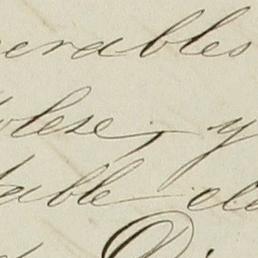 erables
lese, y
able ele